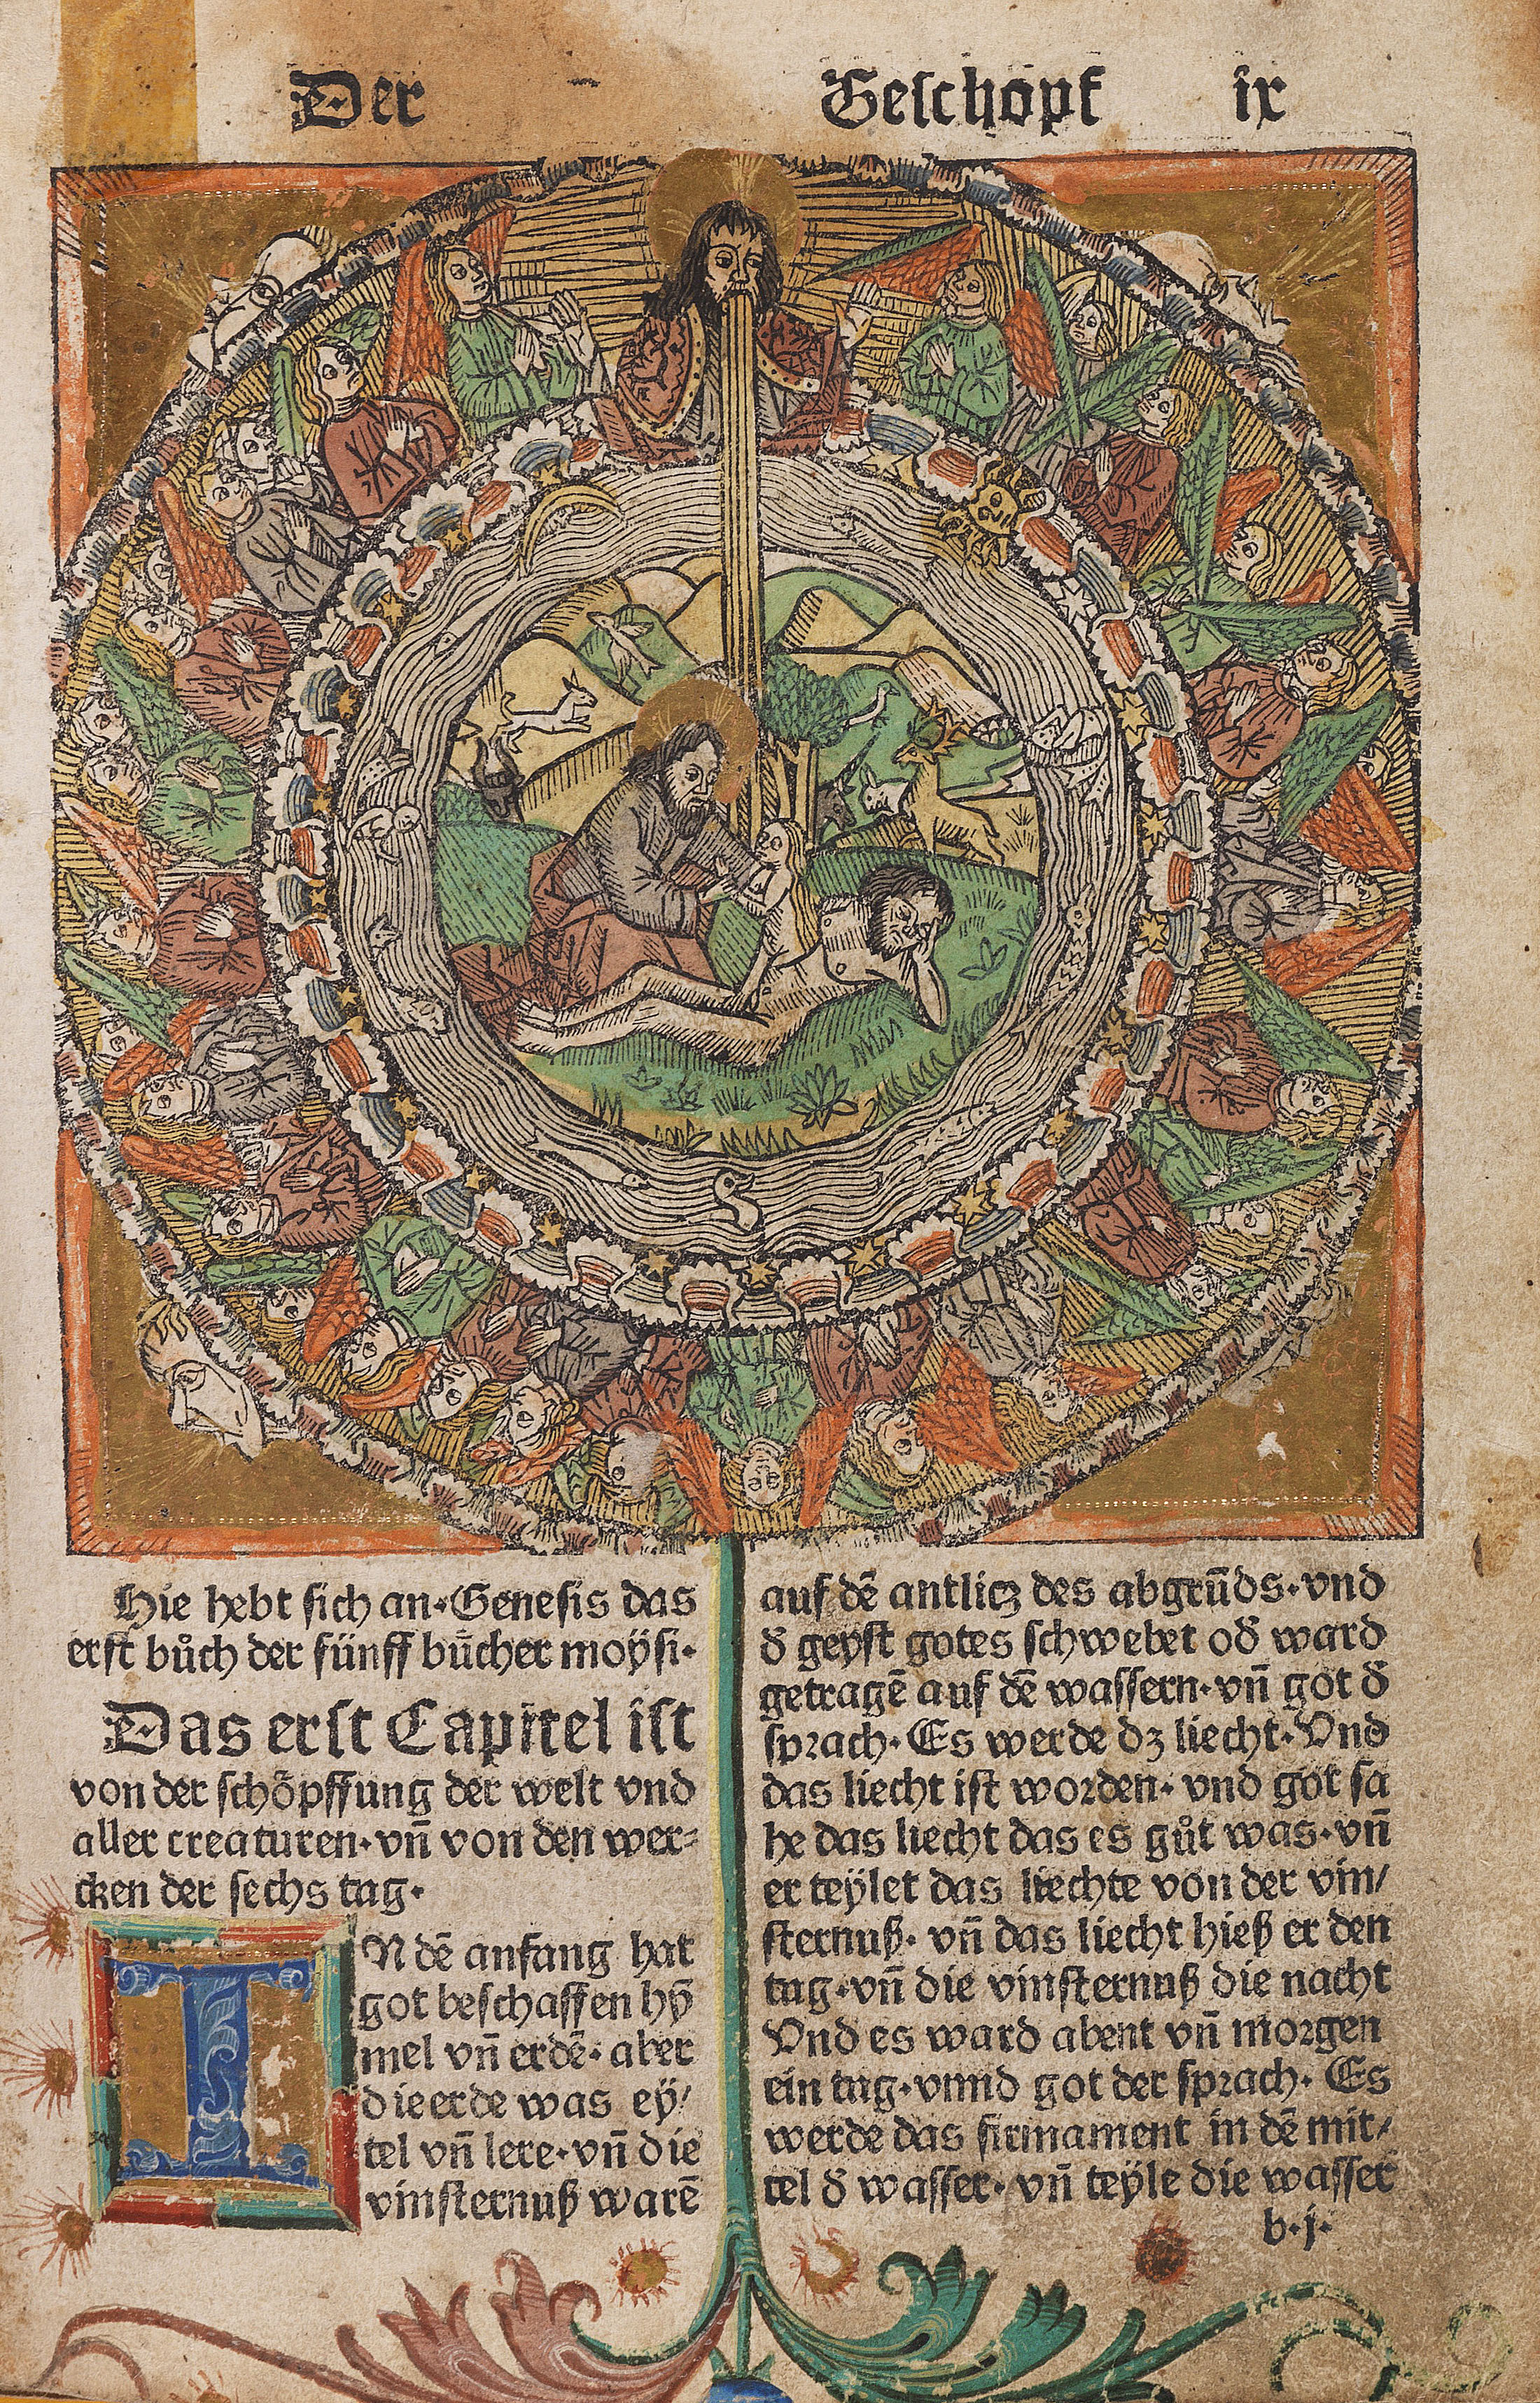 Der Geschopf ix
Hie hebt sich an·Genesis das
erst bůch der fünff bücher moÿsi·
Das erst Capitel ist
von der schöpffung der welt vnd
aller creaturen·vn̄ von den wer⸗
cken der sechs tag·
IN dē anfang hat
got beschaffen hÿ
mel vn̄ erdē·aber
die erde was eÿ/
tel vn̄ lere·vn̄ die
vinsternuß warē
auf dē antlitz des abgrūds·vnd
d̄ geyst gotes schwebet od̄ ward
getragē auf dē wassern·vn̄ got d̄
sprach·Es werde dz liecht·Vnd
das liecht ist worden·vnd got sa
he das liecht das es gůt was·vn̄
er teÿlet das liechte von der vin/
sternuß·vn̄ das liecht hieß er den
tag·vn̄ die vinsternuß die nacht
Vnd es ward abent vn̄ morgen
ein tag·vnnd got der sprach·Es
werde das firmament in dē mit/
tel d̄ wasser·vn̄ teÿle die wasser
b·j·